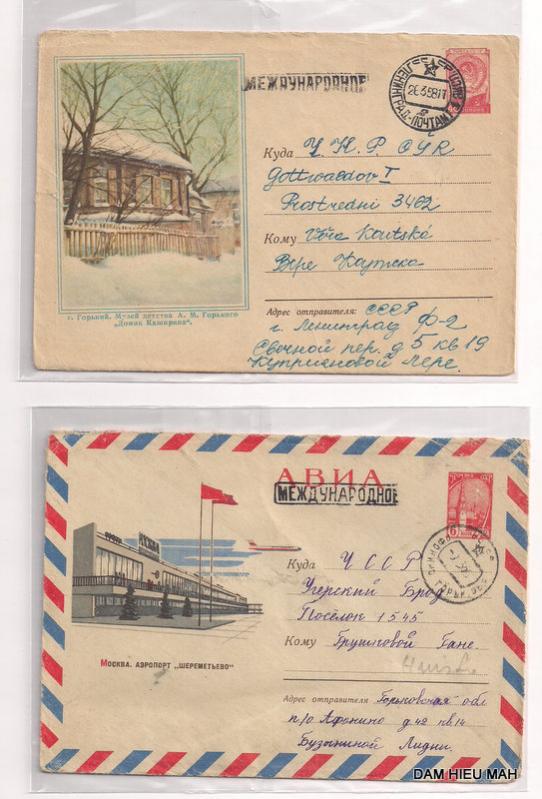 МЕЖДУНАРОДНОЕ
ЛЕНИНГРАД-ПОЧТАМТ
26.3.58.17
Куда
Gottwaldov I
Prostredni 3462
Кому Věra Koutská
Вере
г. Горький. Музей детства А. М. Горького
„Домик Каширина“.
Адрес отправителя: СССР
г. Ленинград Ф-2
Свечной пер. д 5 кв 19
Куприяновой Лере.
АВИА
МЕЖДУНАРОДНОЕ
Куда ЧССР
Угерский Брод
Посёлок 1545
Кому Грушковой Гане.
МОСКВА. АЭРОПОРТ „ШЕРЕМЕТЬЕВО“
Адрес отправителя Горьковская обл
п/о Афонино д 42 кв 14
Бузыниной Лидии.
DAM HIEU MAH